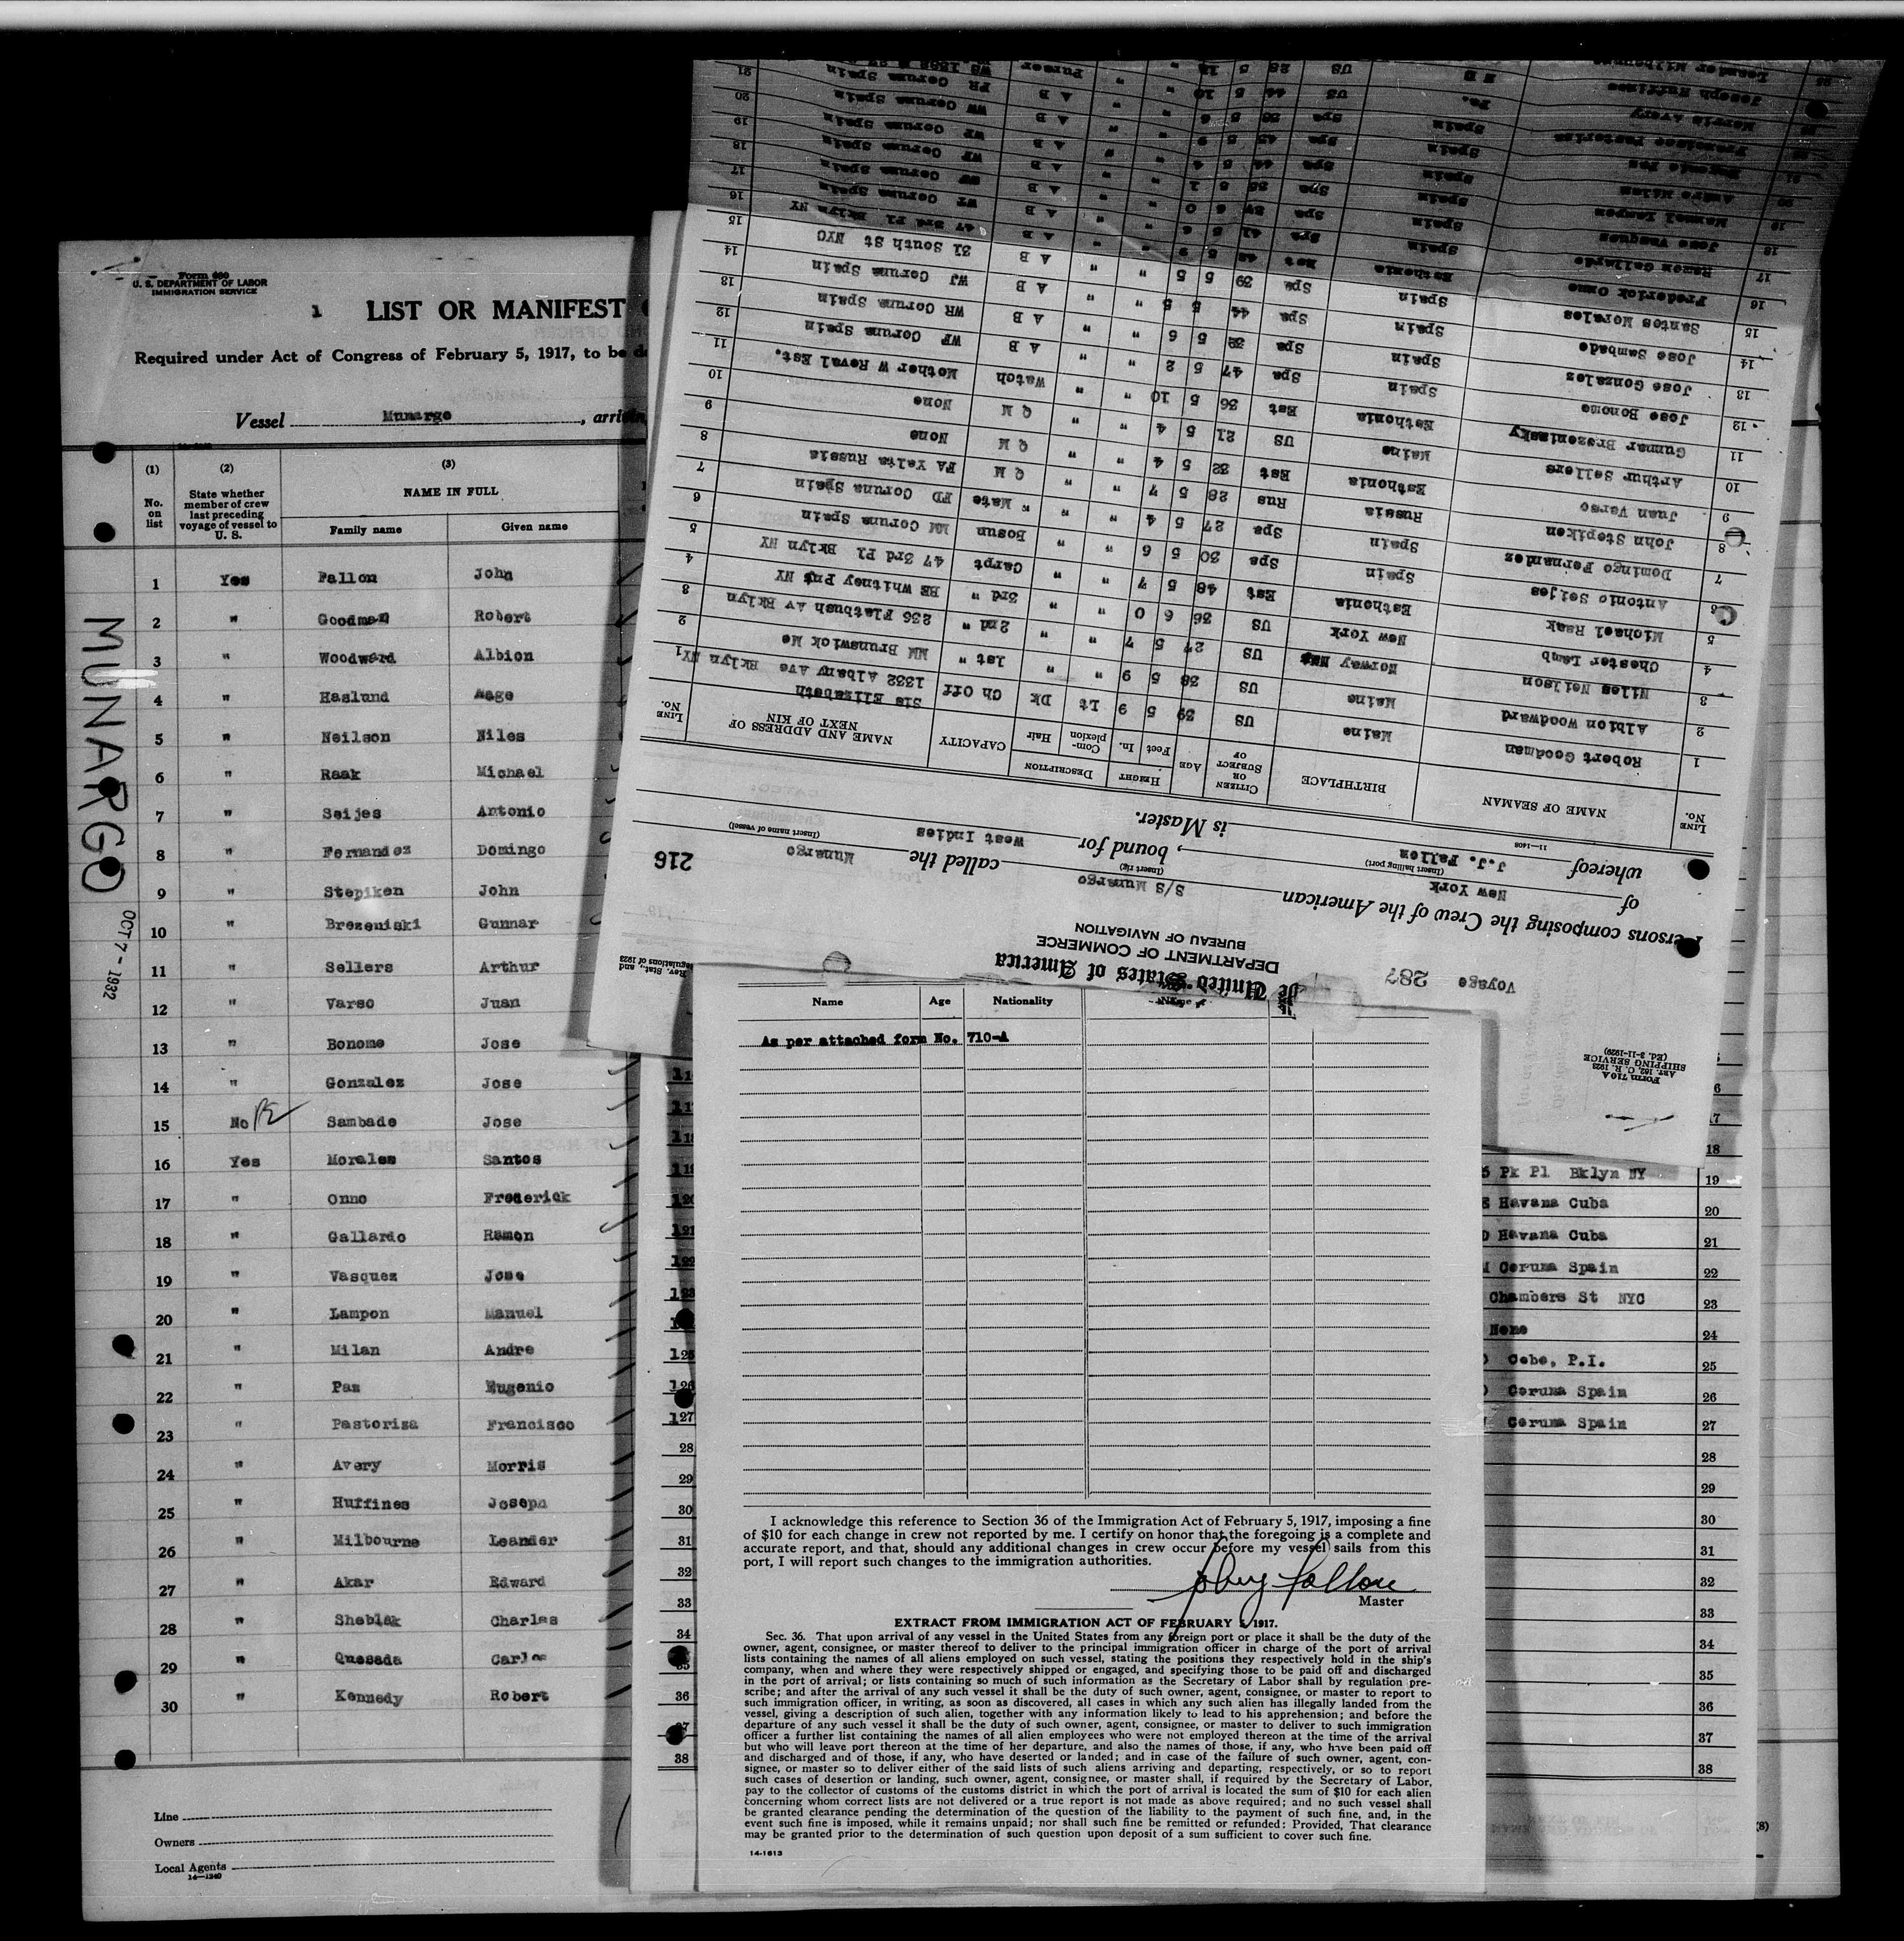 Form 680
U. S. DEPARTMENT OF LABOR
IMMIGRATION SERVICE
1 LIST OR MANIFEST
Required under Act of Congress of February 5, 1917, to be
Vessel Munargo, arriving
(1) (2) (3)
No. on list
State whether member of crew last preceding voyage of vessel to U. S.
NAME IN FULL
Family name Given name
1 Yes Fallon John
2 " Goodman Robert
3 " Woodward Albion
4 " Haslund Aage
5 " Neilson Niles
6 " Raak Michael
7 " Seijes Antonio
8 " Fernandez Domingo
9 " Stepiken John
10 " Brezeniski Gunnar
11 " Sellers Arthur
12 " Varso Juan
13 " Bonome Jose
14 " Gonzalez Jose
15 No Sambade Jose
16 Yes Morales Santos
17 " Onno Frederick
18 " Gallardo Ramon
19 " Vasquez Jose
20 " Lampon Manuel
21 " Milan Andre
22 " Paz Eugenio
23 " Pastoriza Francisco
24 " Avery Morris
25 " Huffines Joseph
26 " Milbourne Leander
27 " Akar Edward
28 " Sheblak Charles
29 " Quesada Carlos
30 " Kennedy Robert
Line
Owners
Local Agents
14—1240
MUNARGO
OCT 7 - 1932
Form 710 A
ART. 162, C. R. 1923
SHIPPING SERVICE
(Ed. 3-11-1929)
Voyage 287
United States of America
DEPARTMENT OF COMMERCE
BUREAU OF NAVIGATION
Rev. Stat., and
Regulations of 1923
Persons composing the Crew of the American S/S Munargo
(Insert rig)
216
of New York called the Munargo
(Insert hailing port) (Insert name of vessel)
whereof J.J. Fallon is Master. , bound for West Indies
11—1408
LINE No. NAME OF SEAMAN BIRTHPLACE CITIZEN OR SUBJECT OF AGE HEIGHT Feet In. DESCRIPTION Complexion Hair CAPACITY NAME AND ADDRESS OF NEXT OF KIN LINE No.
1 Robert Goodman Maine US 39 5 9 Lt Dk Ch Off Sis Elizabeth 1332 Albany Ave Bklyn NY 1
2 Albion Woodward Maine US 38 5 9 " " 1st " MM Brunswick Me 2
3 Niles Neilson Norway US 27 5 7 " " 2nd " 236 Flatbush Av Bklyn 3
4 Chester Lamb New York US 36 6 0 " " 3rd " Whitney NY 4
5 Michael Raak Esthonia Est 48 5 7 " " Carpt 47 3rd Pl Bklyn NY 5
6 Antonio Seijes Spain Spa 30 5 6 " " Bosun MM Coruna Spain 6
7 Domingo Fernandez Spain Spa 27 5 4 " " " Mate FD Coruna Spain 7
8 John Stepiken Russia Rus 28 5 7 " " Q M FA Yalta Russia 8
9 Juan Varso Esthonia Est 32 5 4 " " Q M None 9
10 Arthur Sellers Maine US 21 5 4 " " Q M None 10
11 Gunnar Brezeninsky Esthonia Est 36 5 10 " " Watch Mother W Reval Est. 11
12 Jose Bonome Spain Spa 47 5 2 " " A B WF Coruna Spain 12
13 Jose Gonzalez Spain Spa 32 5 6 " " A B WR Coruna Spain 13
14 Jose Sambade Spain Spa 44 5 5 " " A B WJ Coruna Spain 14
15 Santos Morales Spain Spa 39 5 5 " " A B 31 South St NYC 15
16 Frederick Onno Esthonia Est 48 5 9 " " A B 47 3rd Pl Bklyn NY 16
17 Ramon Gallardo Spain Spa 41 5 6 " " A B Coruna Spain 17
18 Jose Vasques Spain Spa 6 0 " " A B Coruna Spain 18
19 Manuel Lampon Spain Spa 5 1 " " A B Coruna Spain 19
20 Andre Milan Spain Spa 44 5 4 " " A B Coruna Spain 20
21 Eugenio Paz Spain Spa 5 9 " " A B Coruna Spain 21
Francisco Pastoriza Spain Spa 5 6 " " A B Coruna Spain
Morris Avery Pa. US 44 5 10 " A B
Joseph Huffines US 5 " Purser
Leander Milbourne
Name Age Nationality
As per attached form No. 710-A
I acknowledge this reference to Section 36 of the Immigration Act of February 5, 1917, imposing a fine
of $10 for each change in crew not reported by me. I certify on honor that the foregoing is a complete and
accurate report, and that, should any additional changes in crew occur before my vessel sails from this
port, I will report such changes to the immigration authorities.
John J Fallon
Master
EXTRACT FROM IMMIGRATION ACT OF FEBRUARY 5, 1917.
Sec. 36. That upon arrival of any vessel in the United States from any foreign port or place it shall be the duty of the
owner, agent, consignee, or master thereof to deliver to the principal immigration officer in charge of the port of arrival
lists containing the names of all aliens employed on such vessel, stating the positions they respectively hold in the ship's
company, when and where they were respectively shipped or engaged, and specifying those to be paid off and discharged
in the port of arrival; or lists containing so much of such information as the Secretary of Labor shall by regulation pre-
scribe; and after the arrival of any such vessel it shall be the duty of such owner, agent, consignee, or master to report to
such immigration officer, in writing, as soon as discovered, all cases in which any such alien has illegally landed from the
vessel, giving a description of such alien, together with any information likely to lead to his apprehension; and before the
departure of any such vessel it shall be the duty of such owner, agent, consignee, or master to deliver to such immigration
officer a further list containing the names of all alien employees who were not employed thereon at the time of the arrival
but who will leave port thereon at the time of her departure, and also the names of those, if any, who have been paid off
and discharged and of those, if any, who have deserted or landed; and in case of the failure of such owner, agent, con-
signee, or master so to deliver either of the said lists of such aliens arriving and departing, respectively, or so to report
such cases of desertion or landing, such owner, agent, consignee, or master shall, if required by the Secretary of Labor,
pay to the collector of customs of the customs district in which the port of arrival is located the sum of $10 for each alien
concerning whom correct lists are not delivered or a true report is not made as above required; and no such vessel shall
be granted clearance pending the determination of the question of the liability to the payment of such fine, and, in the
event such fine is imposed, while it remains unpaid; nor shall such fine be remitted or refunded: Provided, That clearance
may be granted prior to the determination of such question upon deposit of a sum sufficient to cover such fine.
14-1613
18
Pk Pl Bklyn NY 19
Havana Cuba 20
Havana Cuba 21
Coruna Spain 22
Chambers St NYC 23
None 24
Cebe, P.I. 25
Coruna Spain 26
Coruna Spain 27
28
29
30
31
32
33
34
35
36
37
38
(8)